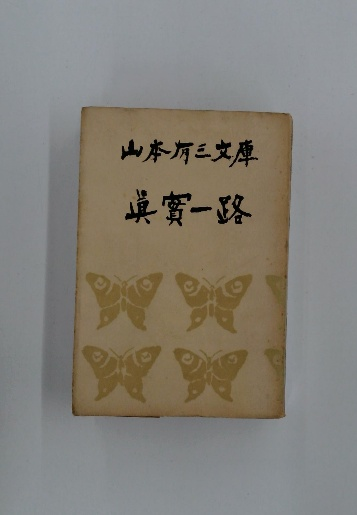 山本有三文庫
眞實一路